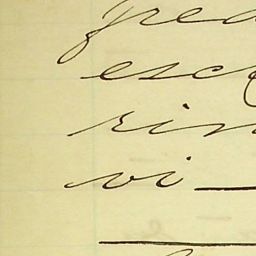 fred
esc
rin
vi